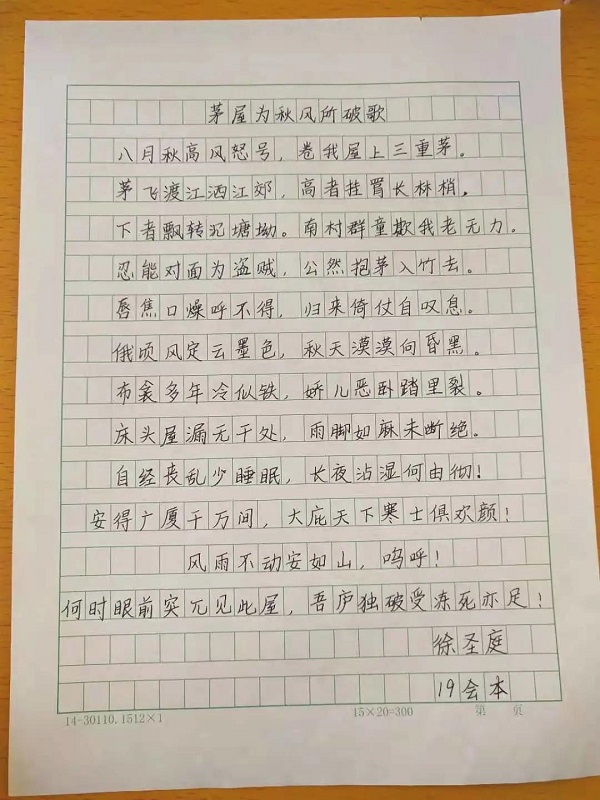 茅屋为秋风所破歌
八月秋高风怒号，卷我屋上三重茅。
茅飞渡江洒江郊，高者挂罥长林梢。
下者飘转沉塘坳。南村群童欺我老无力。
忍能对面为盗贼，公然抱茅入竹去。
唇焦口燥呼不得，归来倚仗自叹息。
俄顷风定云墨色，秋天漠漠向昏黑。
布衾多年冷似铁，娇儿恶卧踏里裂。
床头屋漏无干处，雨脚如麻未断绝。
自经丧乱少睡眠，长夜沾湿何由彻！
安得广厦千万间，大庇天下寒士俱欢颜！
风雨不动安如山，呜呼！
何时眼前突兀见此屋，吾庐独破受冻死亦足！
徐圣庭
19会本
14-30110.1512×1 15×20=300 第 页